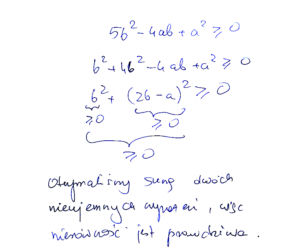 5b² - 4ab + a² ⩾ 0
b² + 4b² - 4ab + a² ⩾ 0
b² + (2b - a)² ⩾ 0
⩾0 ⩾0
⩾0
Otrzymaliśmy sumę dwóch
nieujemnych wyrażeń, więc
nierówność jest prawdziwa.